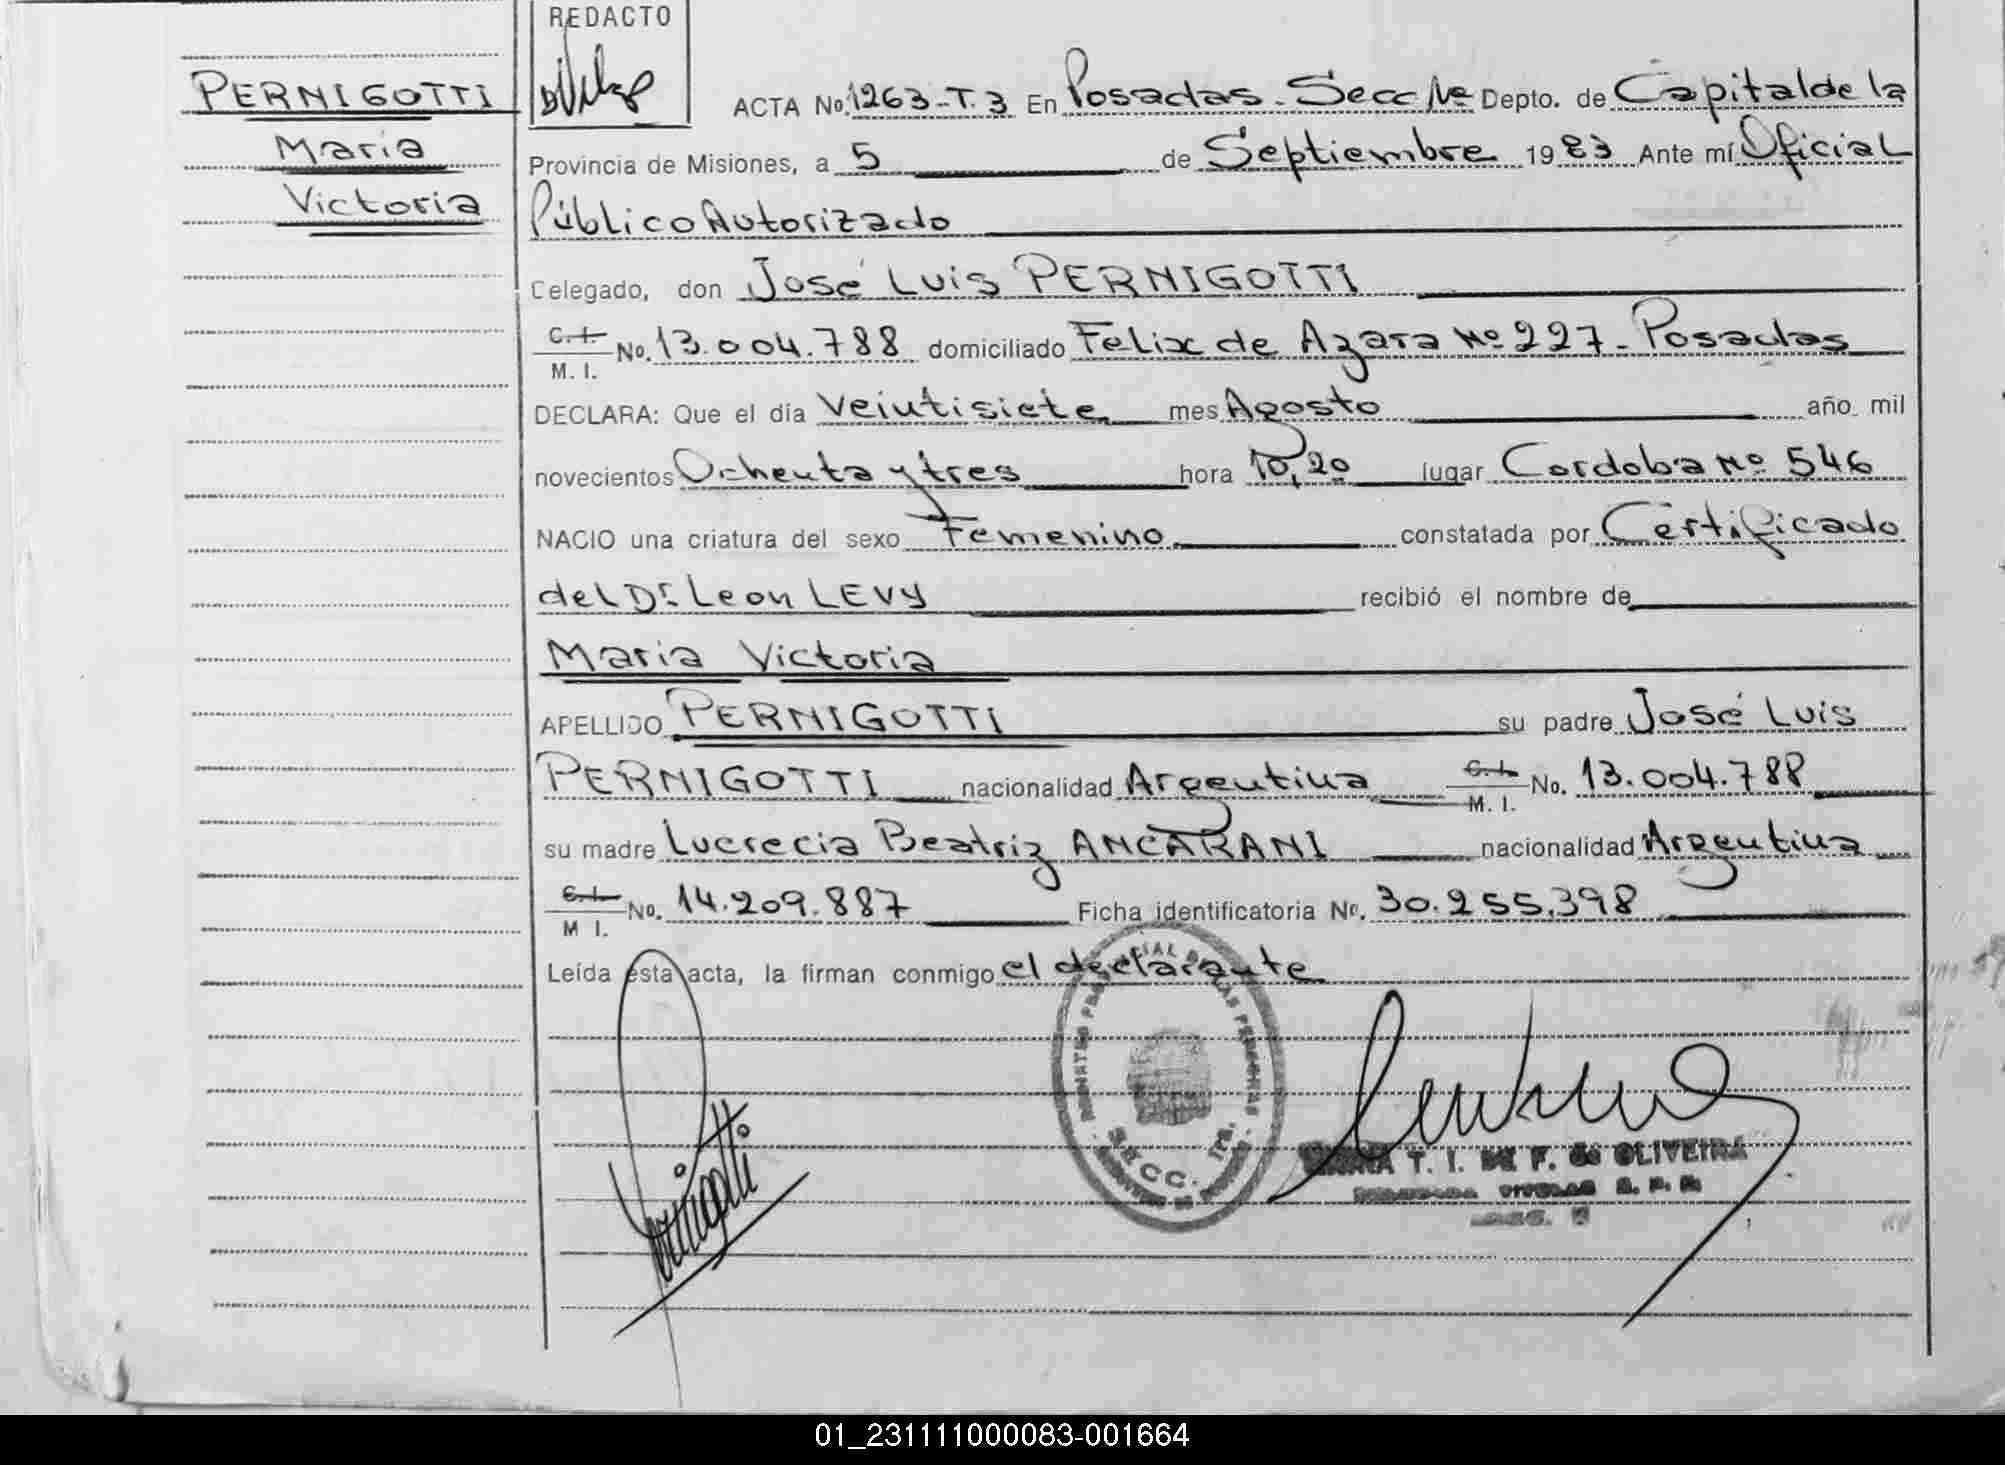 REDACTO
PERNIGOTTI
Maria
Victoria
ACTA No. 1263-T.3 En Posadas. Secc 1ra Depto. de Capital de la
Provincia de Misiones, a 5 de Septiembre 1983 Ante mí Oficial
Público Autorizado
Celegado, don José Luis PERNIGOTTI
C.I.
M. I. No. 13.004.788 domiciliado Felix de Azara Nº 227 - Posadas
DECLARA: Que el día Veintisiete mes Agosto año mil
novecientos Ochenta y tres hora 10,20 lugar Cordoba Nº 546
NACIO una criatura del sexo Femenino constatada por Certificado
del Dr. Leon LEVY recibió el nombre de
Maria Victoria
APELLIDO PERNIGOTTI su padre José Luis
PERNIGOTTI nacionalidad Argentina C.I.
M. I. No. 13.004.788
su madre Lucrecia Beatriz ANCARANI nacionalidad Argentina
C.I.
M I. No. 14.209.887 Ficha identificatoria No. 30.255.398
Leída esta acta, la firman conmigo el declarante
Pernigotti
T. I. DE F. de OLIVEIRA
01_231111000083-001664